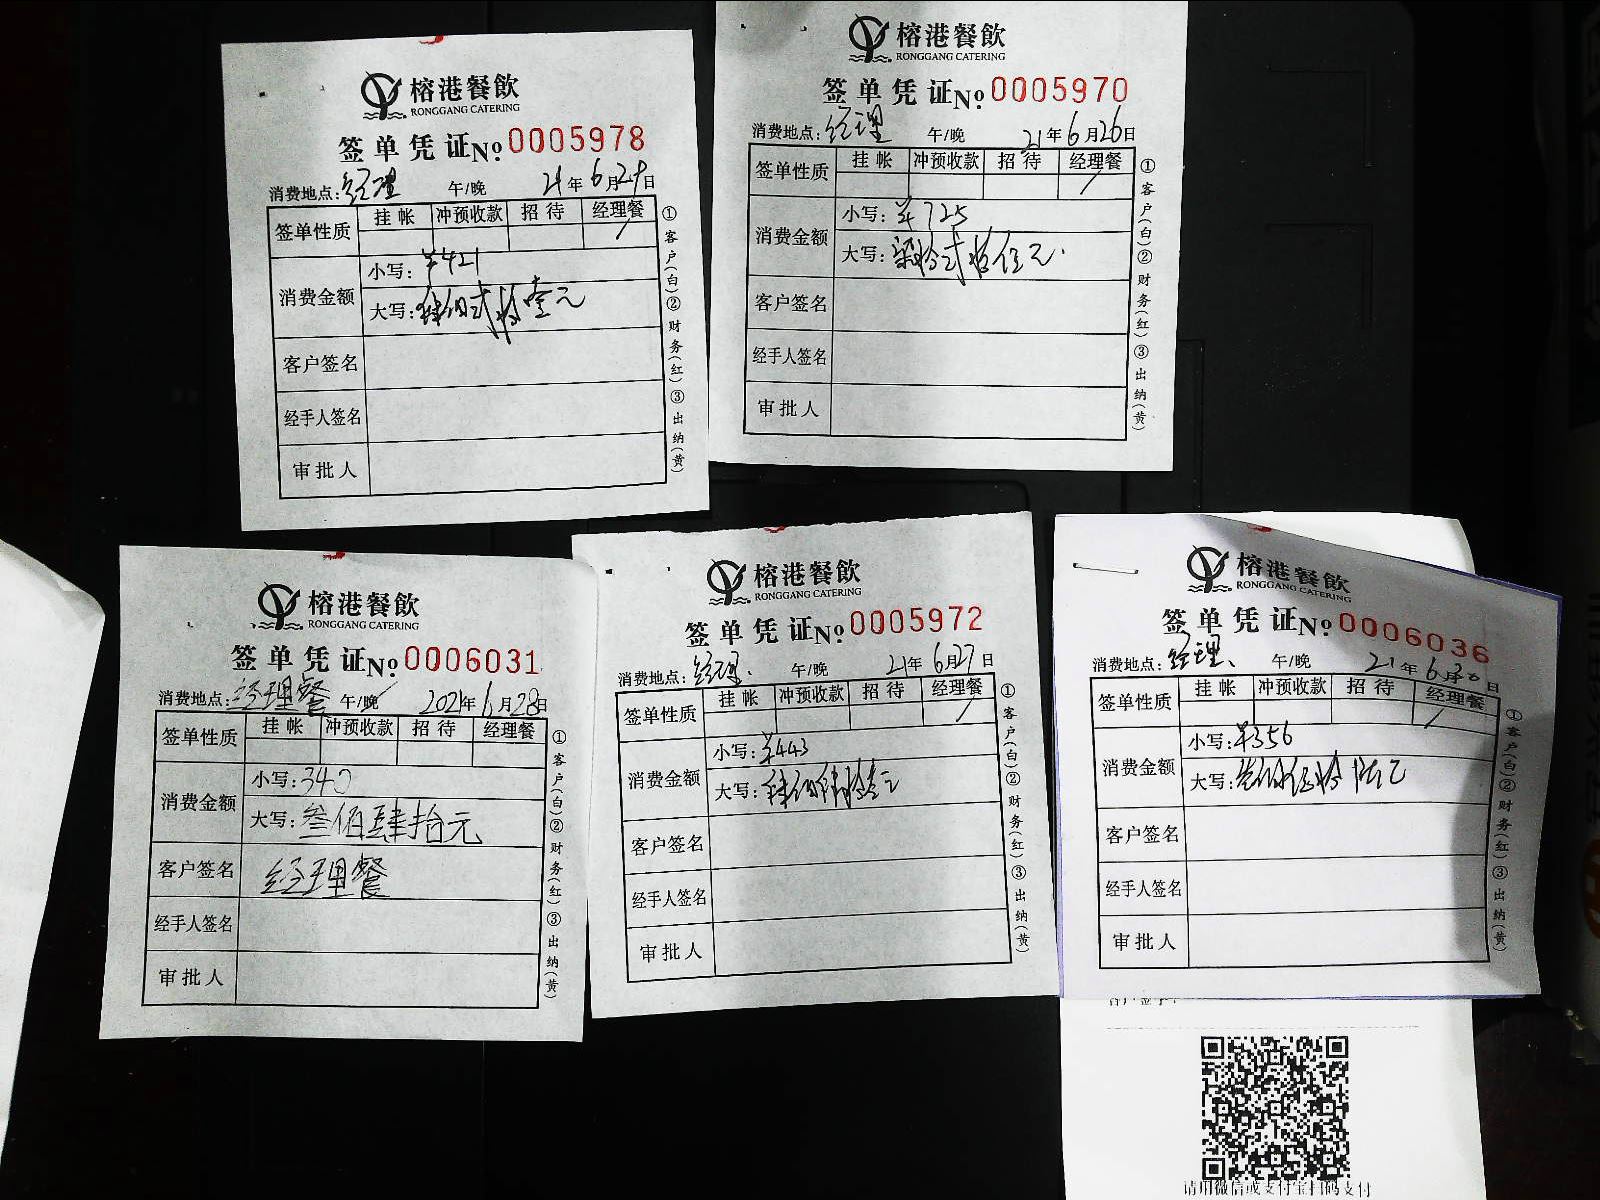 榕港餐飲
RONGGANG CATERING
签单凭证 No 0005978
消费地点:经理 午/晚 21年6月29日
签单性质 挂帐 冲预收款 招待 经理餐
/
消费金额 小写:¥421
大写:肆佰贰拾壹元
客户签名
经手人签名
审批人
①客户(白)②财务(红)③出纳(黄)
榕港餐飲
RONGGANG CATERING
签单凭证 No 0005970
消费地点:经理 午/晚 21年6月26日
签单性质 挂帐 冲预收款 招待 经理餐
/
消费金额 小写:¥725
大写:柒拾贰拾伍元.
客户签名
经手人签名
审批人
①客户(白)②财务(红)③出纳(黄)
榕港餐飲
RONGGANG CATERING
签单凭证 No 0006031
消费地点:经理餐 午/晚 2021年6月28日
签单性质 挂帐 冲预收款 招待 经理餐
消费金额 小写:340
大写:叁佰肆拾元
客户签名 经理餐
经手人签名
审批人
①客户(白)②财务(红)③出纳(黄)
榕港餐飲
RONGGANG CATERING
签单凭证 No 0005972
消费地点:经理. 午/晚 21年6月27日
签单性质 挂帐 冲预收款 招待 经理餐
/
消费金额 小写:¥443
大写:肆佰肆拾叁元
客户签名
经手人签名
审批人
①客户(白)②财务(红)③出纳(黄)
榕港餐飲
RONGGANG CATERING
签单凭证 No 0006036
消费地点:经理、 午/晚 21年6月30日
签单性质 挂帐 冲预收款 招待 经理餐
/
消费金额 小写:¥356
大写:叁佰伍拾陆元
客户签名
经手人签名
审批人
①客户(白)②财务(红)③出纳(黄)
客户签字:
请用微信或支付宝扫码支付